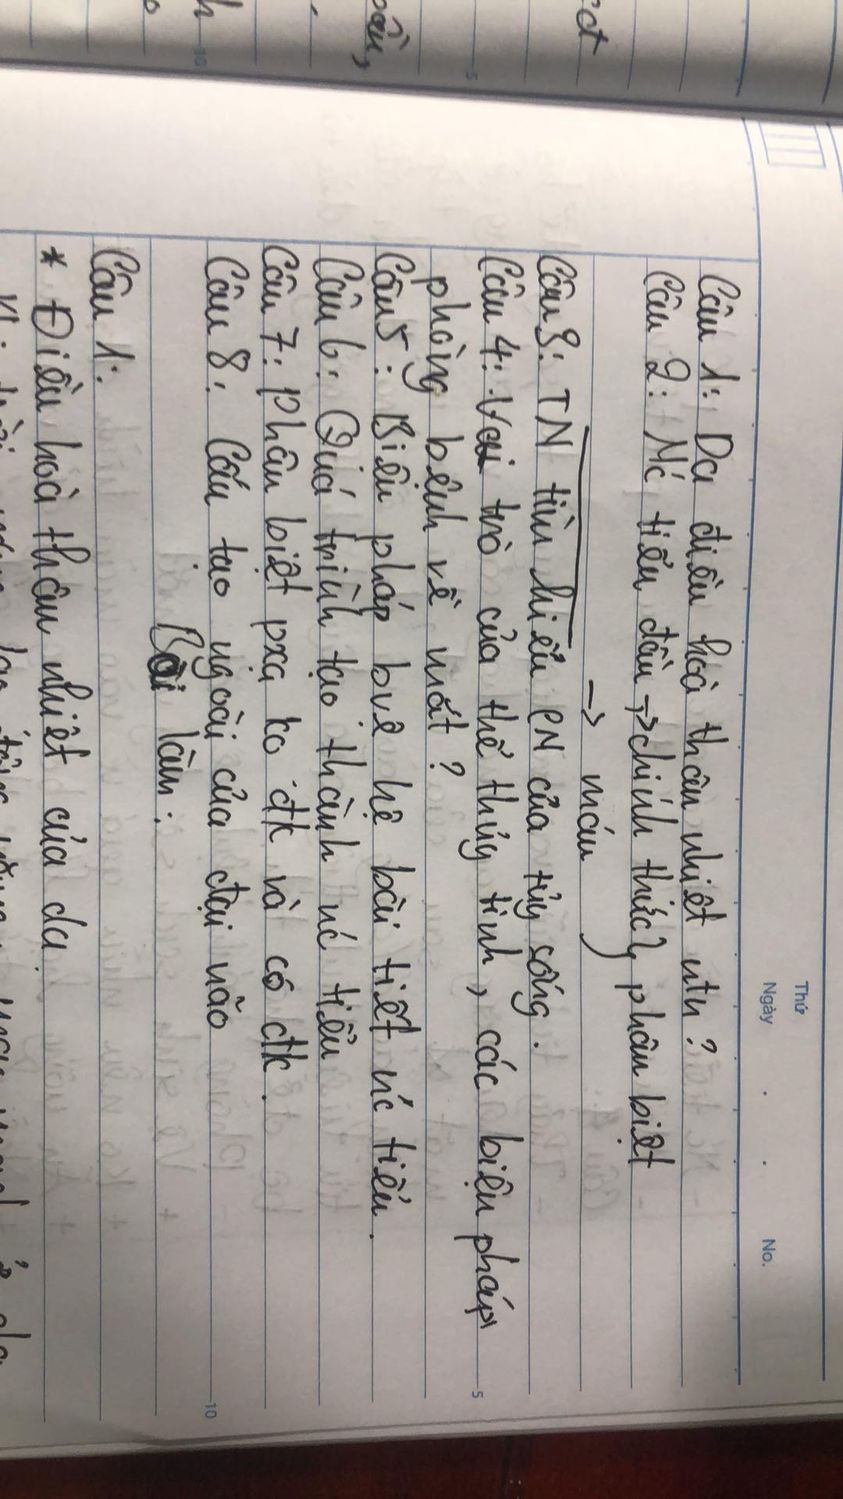 Thứ
Ngày . . No.
Câu 1: Da điều hoà thân nhiệt ntn?
Câu 2: Nć tiểu đầu → chính thức, phân biệt
→ máu
Câu 3: TN tìm hiểu CN của tủy sống.
Câu 4: Vai trò của thể thủy tinh, các biện pháp
phòng bệnh về mắt?
Câu 5: Biện pháp bvệ hệ bài tiết nć tiểu.
Câu 6: Quá trình tạo thành nć tiểu
Câu 7: Phân biệt pxạ ko đk và có đk.
Câu 8: Cấu tạo ngoài của đại não
Bài làm:
Câu 1:
* Điều hoà thân nhiệt của da
5
10